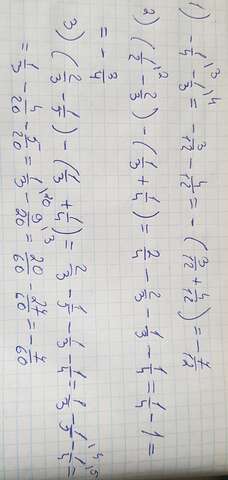 1) -1/4 \3 - 1/3 \4 = -3/12 - 4/12 = -(3/12 + 4/12) = -7/12
2) (1/2 \2 - 2/3) - (1/3 + 1/4) = 2/4 - 2/3 - 1/3 - 1/4 = 1/4 - 1 =
= -3/4
3) (2/3 - 1/5) - (1/3 + 1/4) = 2/3 - 1/5 - 1/3 - 1/4 = 1/3 - 1/5 \4 - 1/4 \5 =
= 1/3 - 4/20 - 5/20 = 1/3 \20 - 9/20 \3 = 20/60 - 27/60 = -7/60